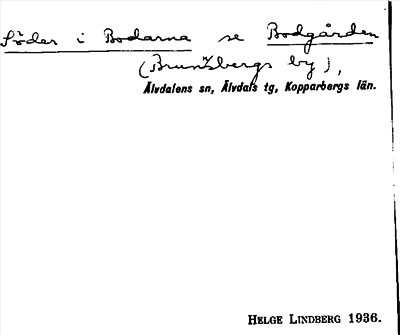 Söder i Bodarna se Bodgården
(Brunnsbergs by),
Älvdalens sn, Älvdals tg, Kopparbergs län.
HELGE LINDBERG 1936.